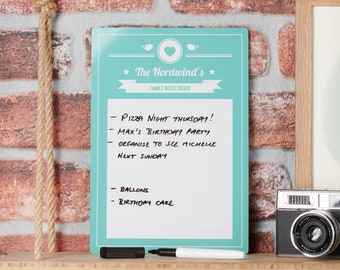 The Nordwind's
FAMILY NOTICE BOARD
- PIZZA NIGHT THURSDAY!
- MAX'S BIRTHDAY PARTY
- ORGANISE TO SEE MICHELLE
NEXT SUNDAY
- BALLONS
- BIRTHDAY CAKE